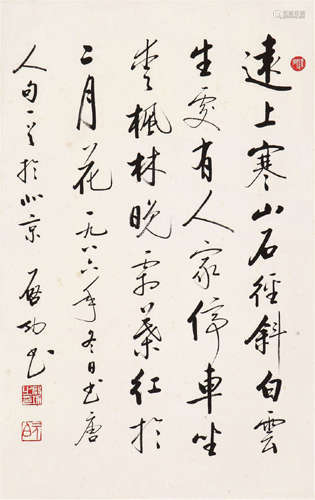 遠上寒山石徑斜白雲
生處有人家停車坐
愛楓林晚霜葉紅於
二月花 一九八六年冬日书唐
人句一首於北京 启功书